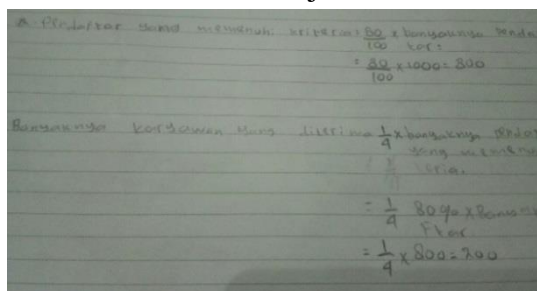 a. Pendaftar yang memenuhi kriteria = 80/100 x banyaknya Penda
ftar.
= 80/100 x 1000 = 800
Banyaknya karyawan yang diterima 1/4 x banyaknya
yang
= 1/4 80% x
ftar
= 1/4 x 800 = 200